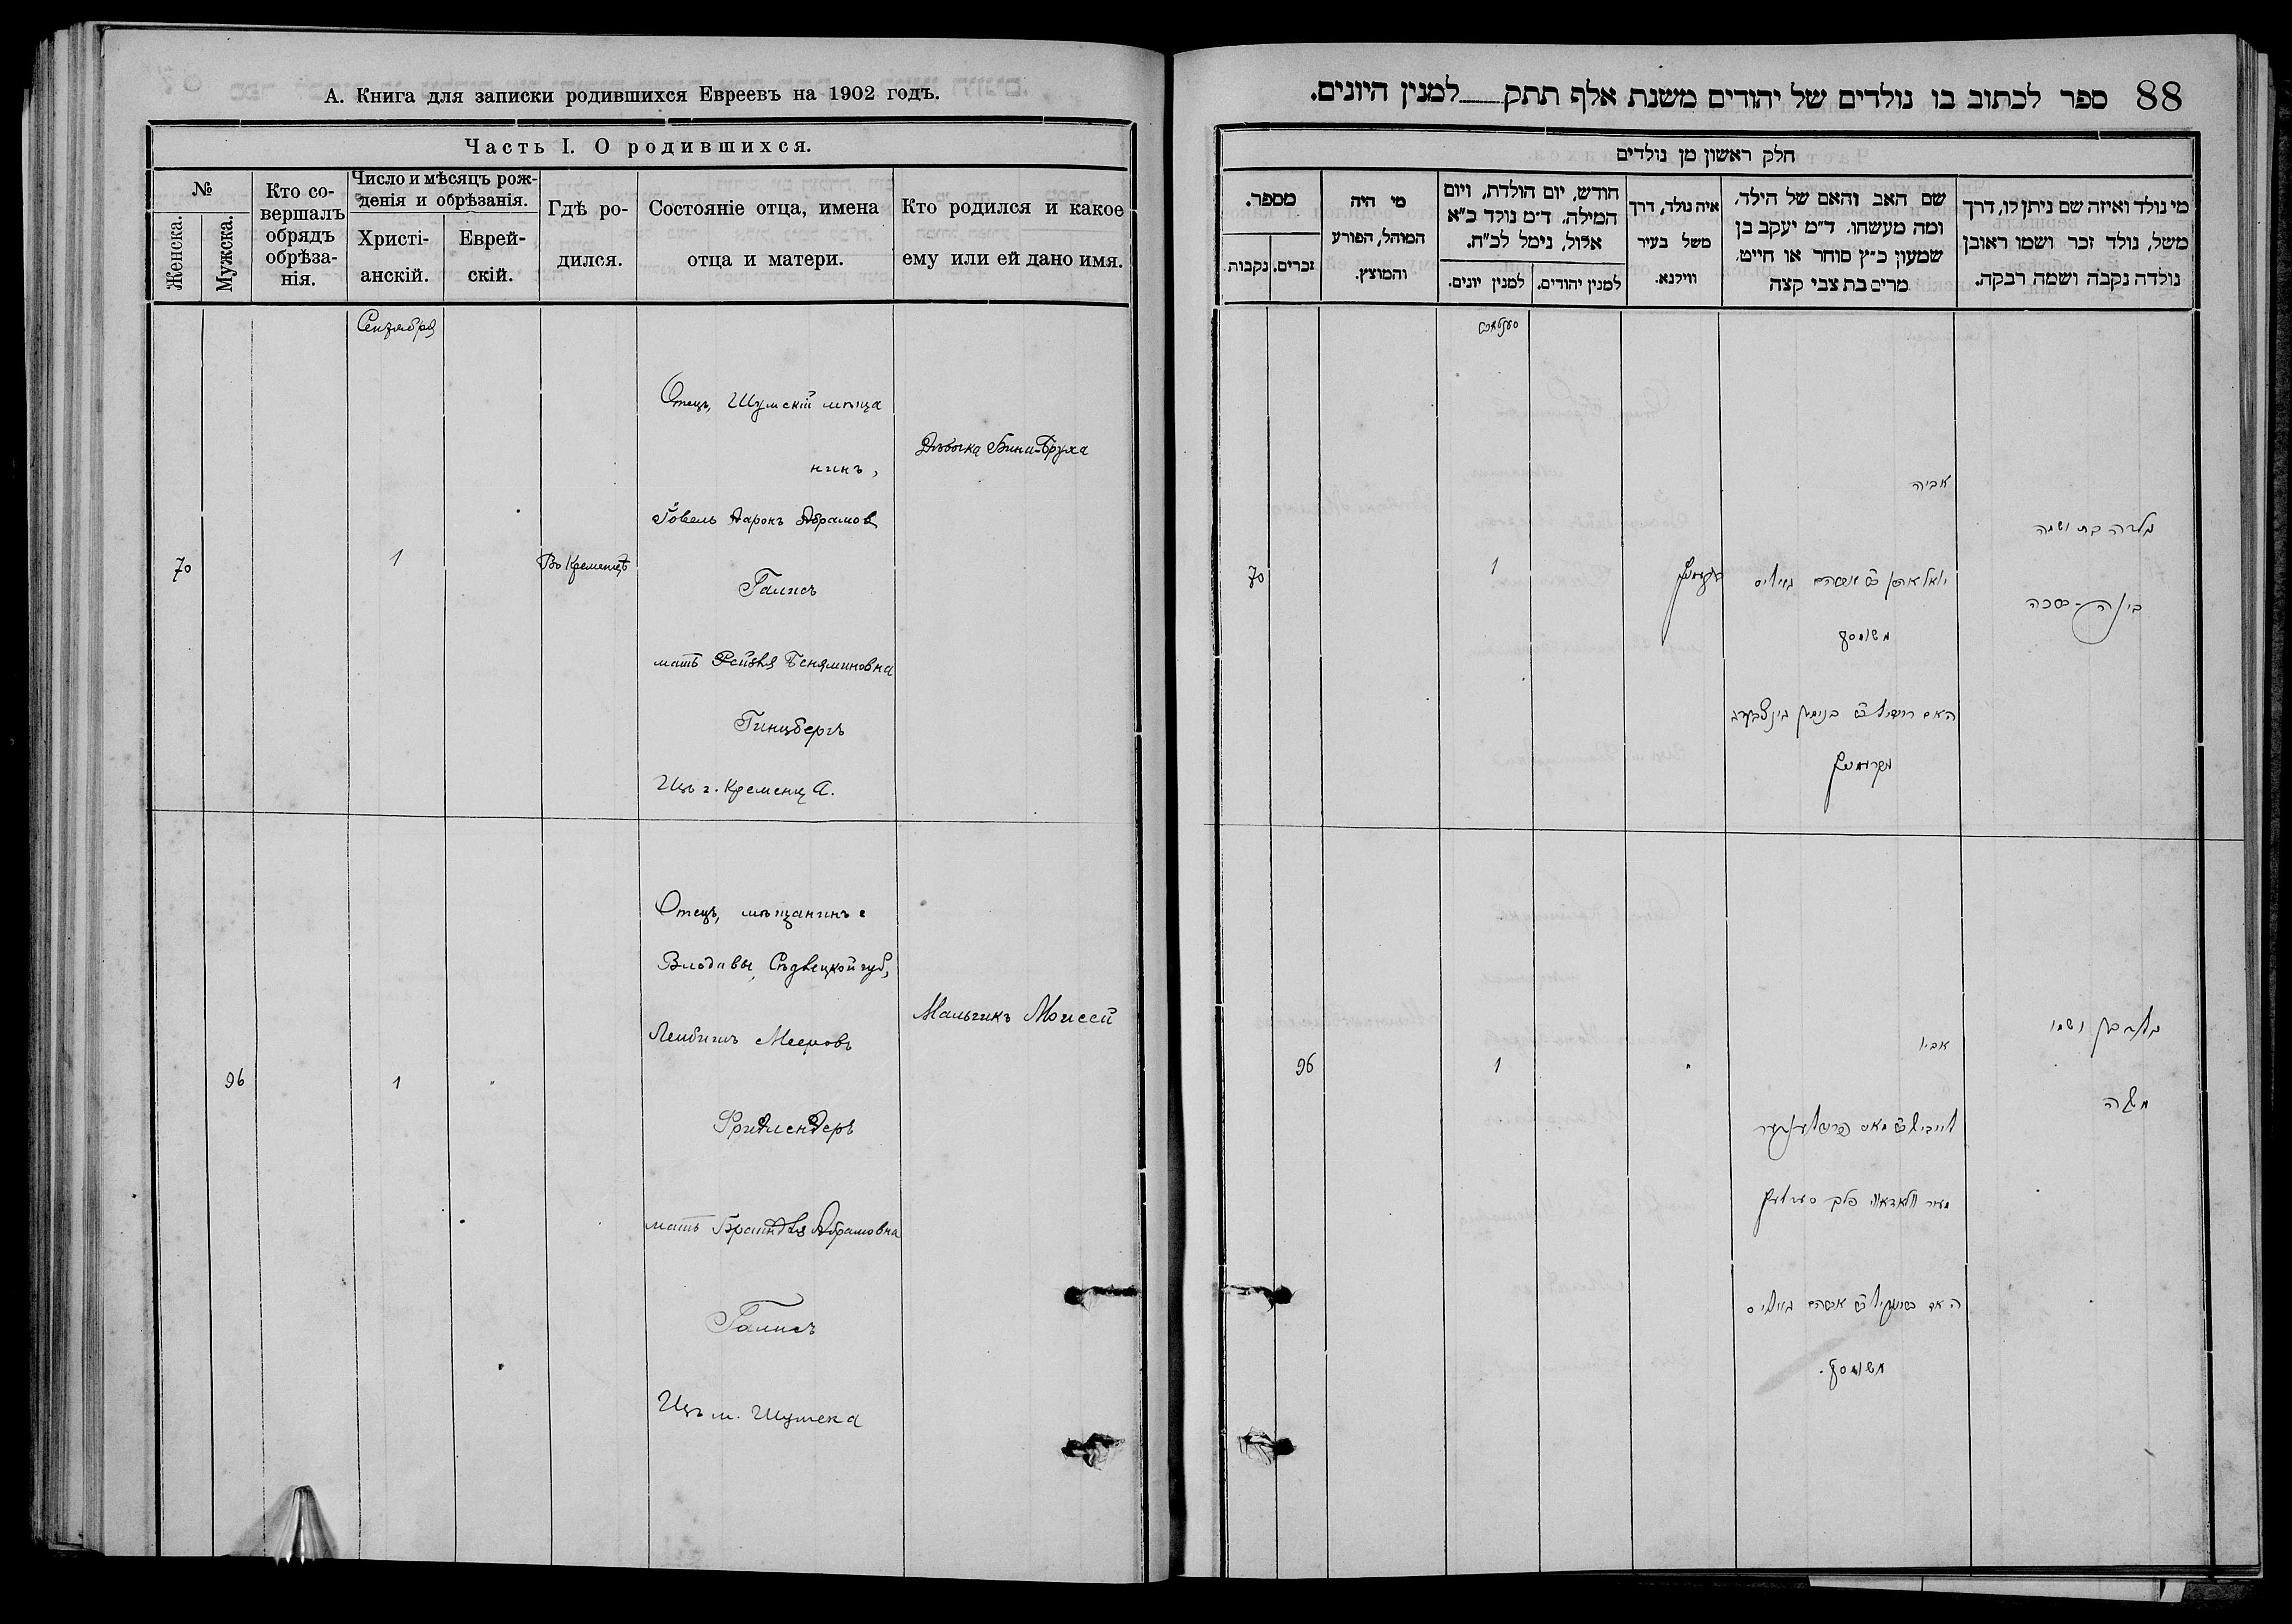 А. Книга для записки родившихся Евреевъ на 1902 годъ.
Часть I. О родившихся.
№
Женска.
Мужска.
Кто со-
вершалъ
обрядъ
обрѣза-
нія.
Число и мѣсяцъ рож-
денія и обрѣзанія.
Христі-
анскій.
Еврей-
скій.
Гдѣ ро-
дился.
Состояніе отца, имена
отца и матери.
Кто родился и какое
ему или ей дано имя.
Сентября
70
1
Въ Кременцѣ
Отецъ, Шумскій мѣща
нинъ,
Іовель Аронъ Абрамов
Галисъ
мать Рейзля Беняминовна
Гинцбергъ
Изъ г. Кременца.
Дѣвочка Бина-Бруха
96
1
Отецъ, мѣщанинъ г
Влодавы, Сѣдлецкой губ,
Лейбишъ Мееровъ
Фридлендеръ
мать Брайндля Абрамовна
Галисъ
Изъ м. Шумска
Мальчикъ Моисей
88 ספר לכתוב בו נולדים של יהודים משנת אלף תתק למנין היונים.
חלק ראשון מן נולדים
מי נולד ואיזה שם ניתן לו, דרך
משל, נולד זכר ושמו ראובן
נולדה נקבה ושמה רבקה.
שם האב והאם של הילד,
ומה מעשהו. ד״מ יעקב בן
שמעון כ״ץ סוחר או חייט,
מרים בת צבי קצה
איה נולד, דרך
משל בעיר
ווילנא.
חודש, יום הולדת, ויום
המילה, ד״מ נולד כ״א
אלול, נימל לכ״ח.
למנין יהודים.
למנין יונים.
מי היה
המוהל, הפורע
והמוצץ.
מספר.
זכרים.
נקבות.
70
1
אביה
משומסק
בינה-ברכה
96
1
אביו
משה
משומסק.